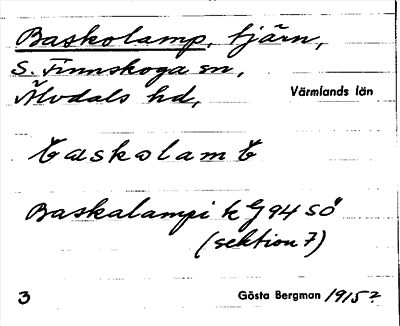 Baskolamp, tjärn,
S. Finnskoga sn,
Älvdals hd,
Värmlands län
baskolamb
Baskalampi k G 94 SÖ
(sektion 7)
3
Gösta Bergman 1915?